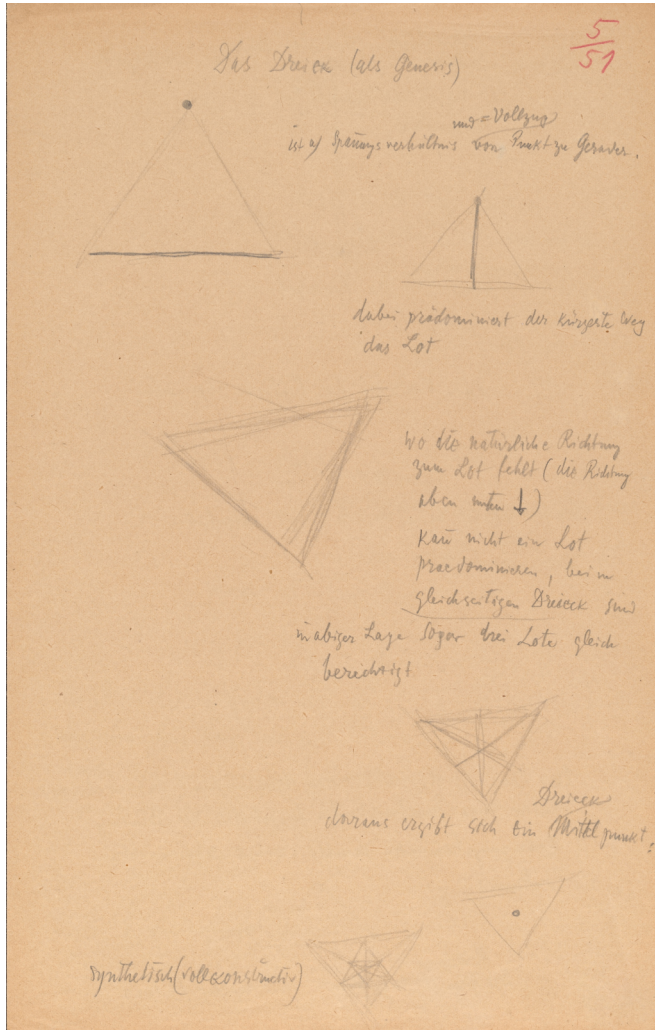 5
51
Das Dreieck (als Genesis)
und = Vollzug
ist a/ Spannungsverhältnis von Punkt zu Gerader.
dabei prädominiert der kürzeste Weg
das Lot
wo die natürliche Richtung
zum Lot fehlt (die Richtung
oben unten ↓)
kañ nicht ein Lot
praedominieren, beim
gleichseitigen Dreieck sind
in obiger Lage sogar drei Lote gleich
berechtigt
Dreieck
daraus ergibt sich ein Mittelpunkt.
synthetisch (vollkonstructiv)